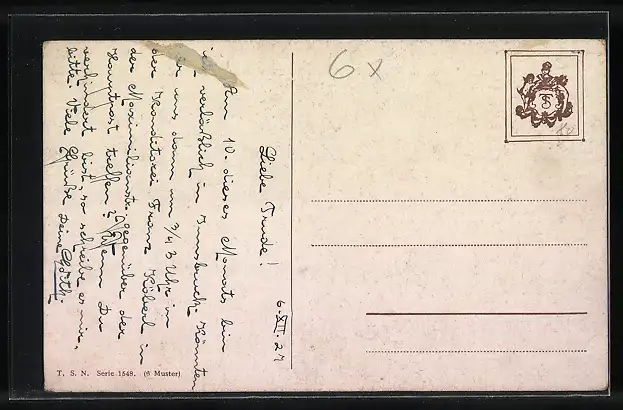 6 x
6. XII. 27
Liebe Trude!
Am 10. dieses Monats bin
ich verläßlich in Innsbruck. Könnten
wir uns dann um 3/4 3 Uhr in
der Konditorei Franz Köberl in
der Maximilianstr. gegenüber der
Hauptpost treffen? Wenn Du
verhindert bist, so schreibe es mir,
bitte. Viele Grüße Deine
T. S. N. Serie 1548. (6 Muster)